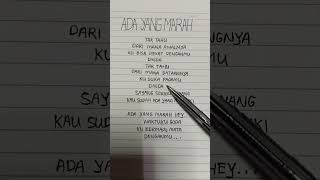 ADA YANG MARAH
TAK TAHU
DARI MANA AWALNYA
KU BISA DEKAT DENGANMU
DINDA
TAK TAHU
DARI MANA DATANGNYA
KU SUKA PADAMU
DINDA
SAYANG
KAU SUDAH ADA YANG
ADA YANG MARAH HEY
WAKTUKU GODA
KU KEDIPKAN MATA
DENGANMU...